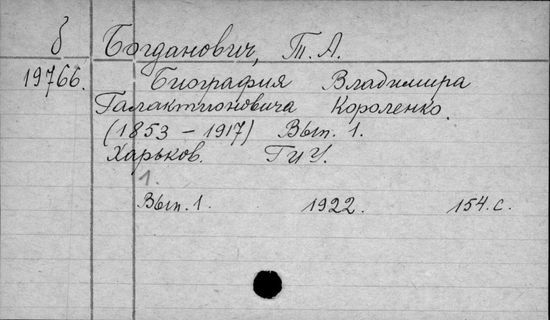 б Богданович, Т. А.
19766. Биография Владимира
Галактионовича Короленко.
(1853 – 1917) Вып. 1.
Харьков. ГИУ.
1.
Вып. 1. 1922. 154 с.